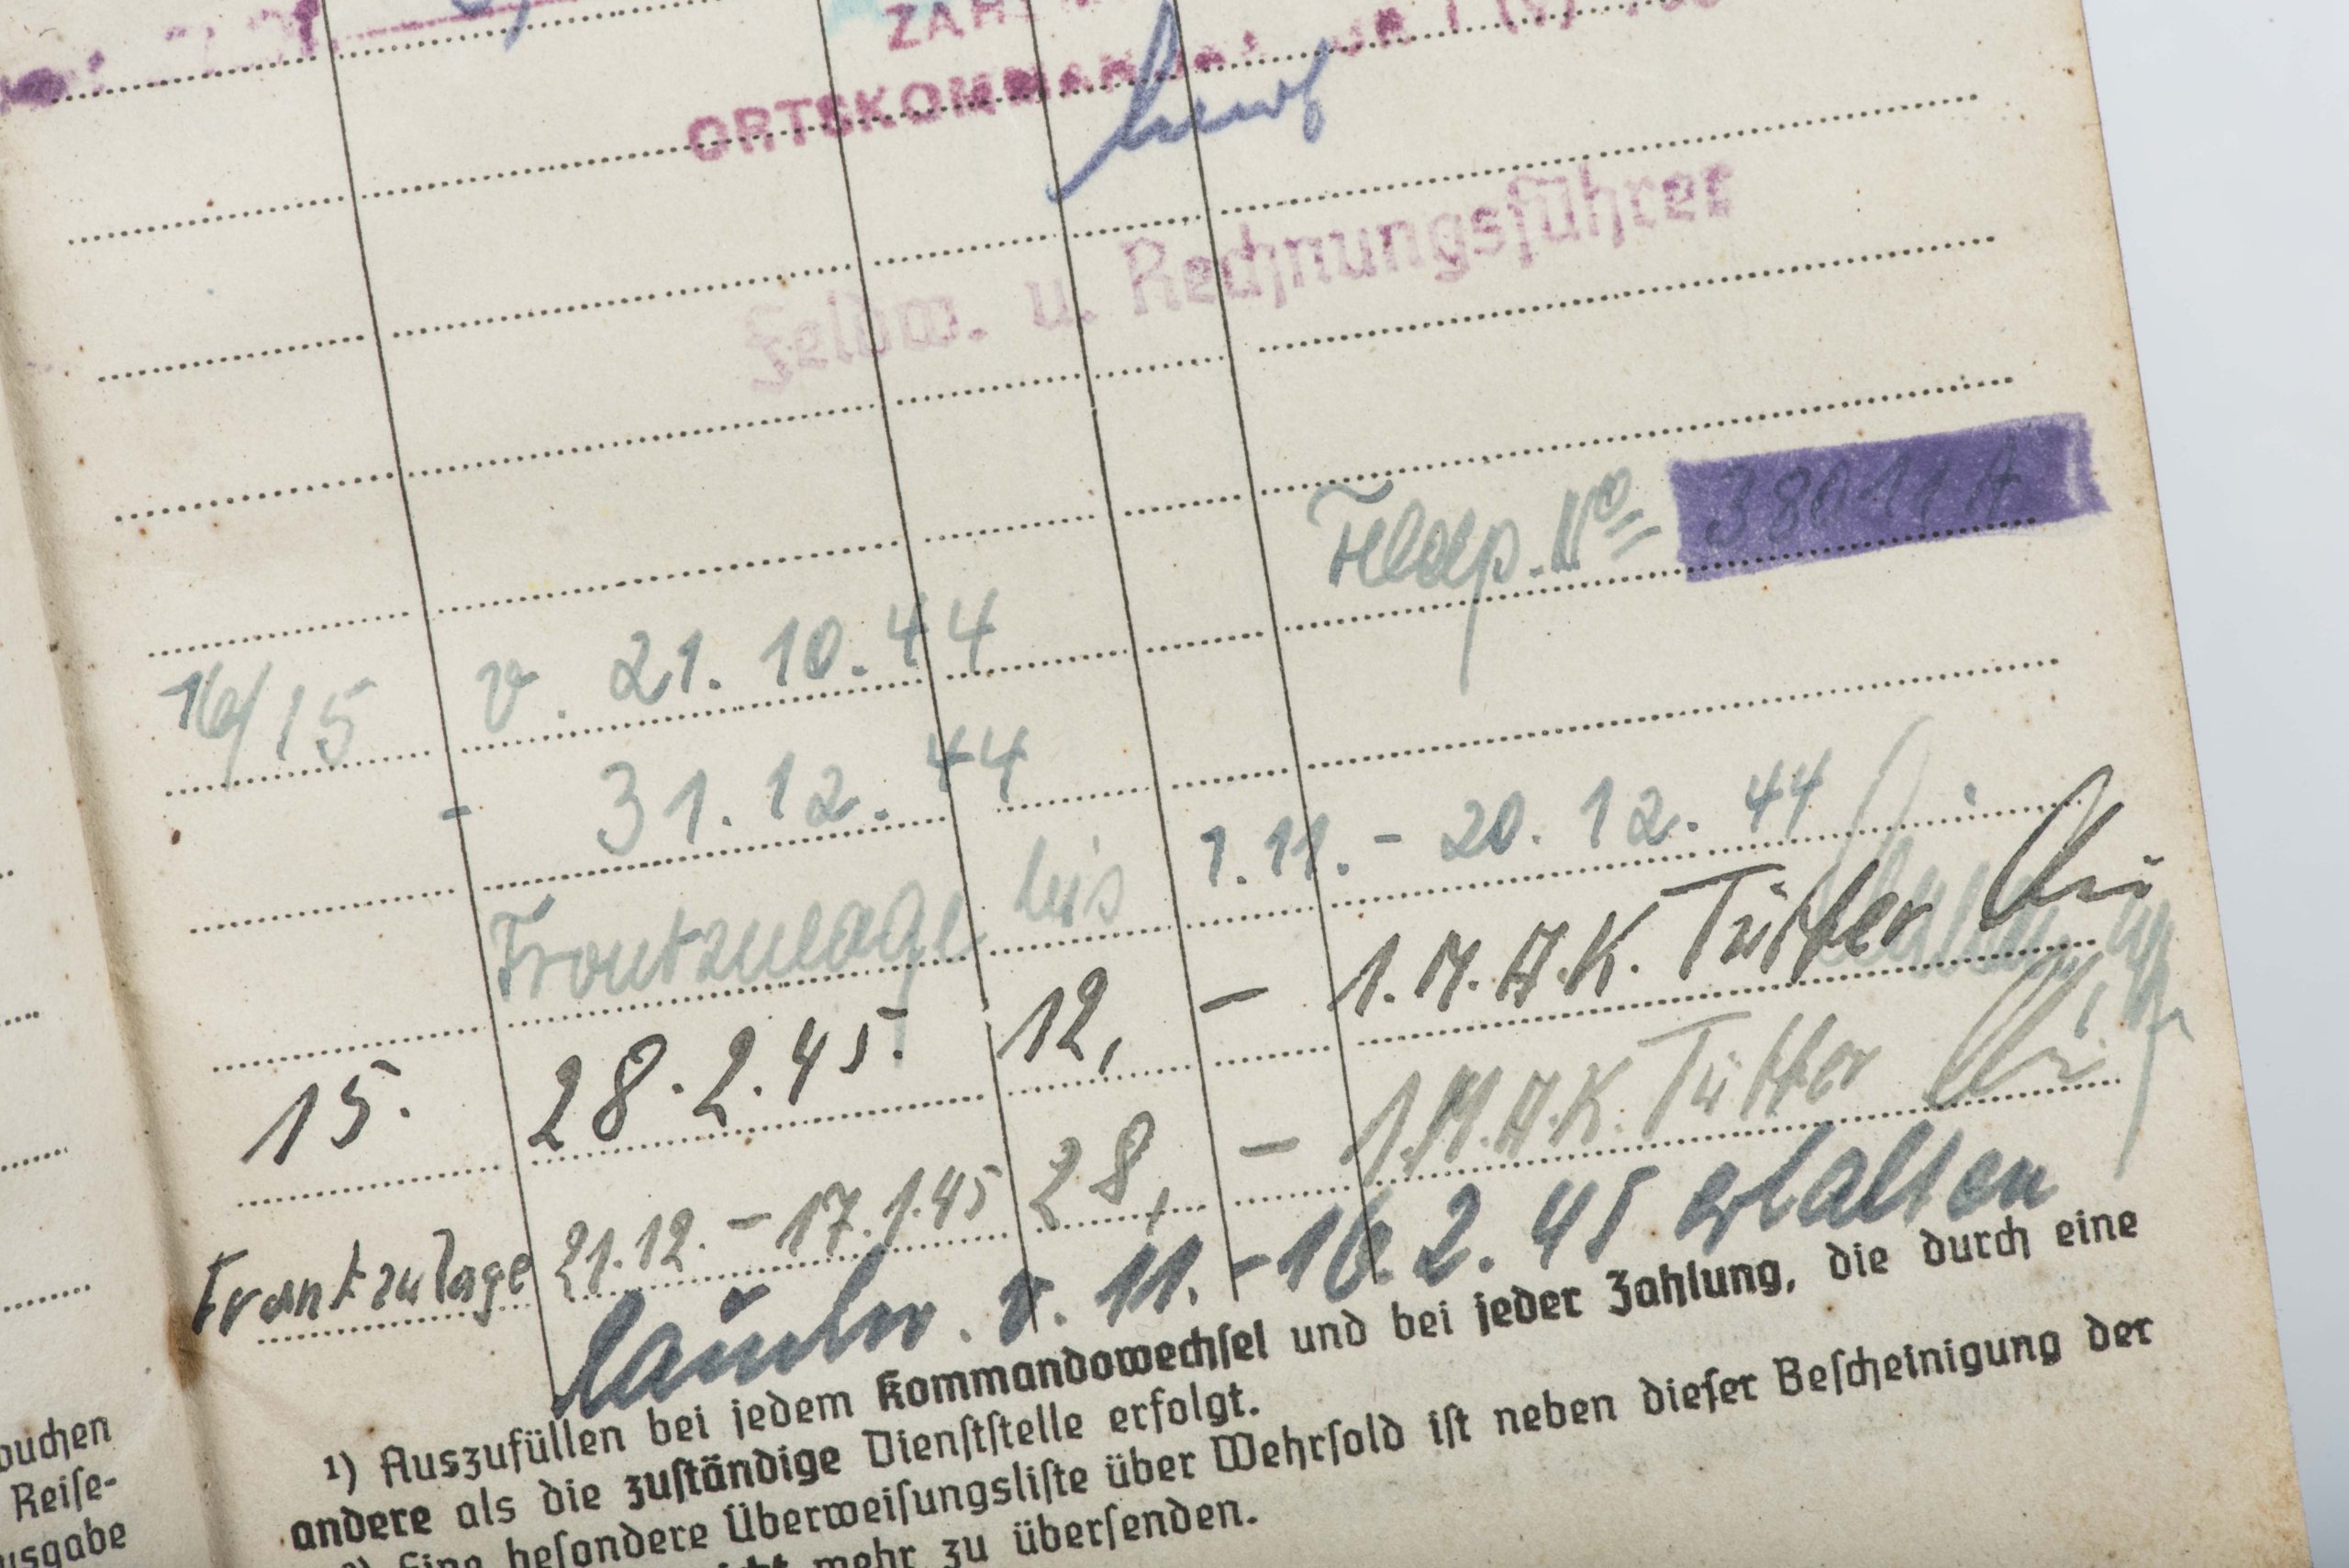 ORTSKOMMAN
Feldw. u. Rechnungsführer
Feldp. No 38011 A
16/15 v. 21.10.44
- 31.12.44
Frontzulage bis 1.11. - 20.12.44
15. 28.2.45. 12, - 1.M.A.K. Tütter
Frontzulage 21.12. - 17.1.45 28, - 1.M.A.K. Tütter
v. 11. - 16.2.45 erhalten
1) Auszufüllen bei jedem Kommandowechsel und bei jeder Zahlung, die durch eine
andere als die zuständige Dienststelle erfolgt.
Eine besondere Überweisungsliste über Wehrsold ist neben dieser Bescheinigung der
mehr zu übersenden.
buchen
Reise-
usgabe